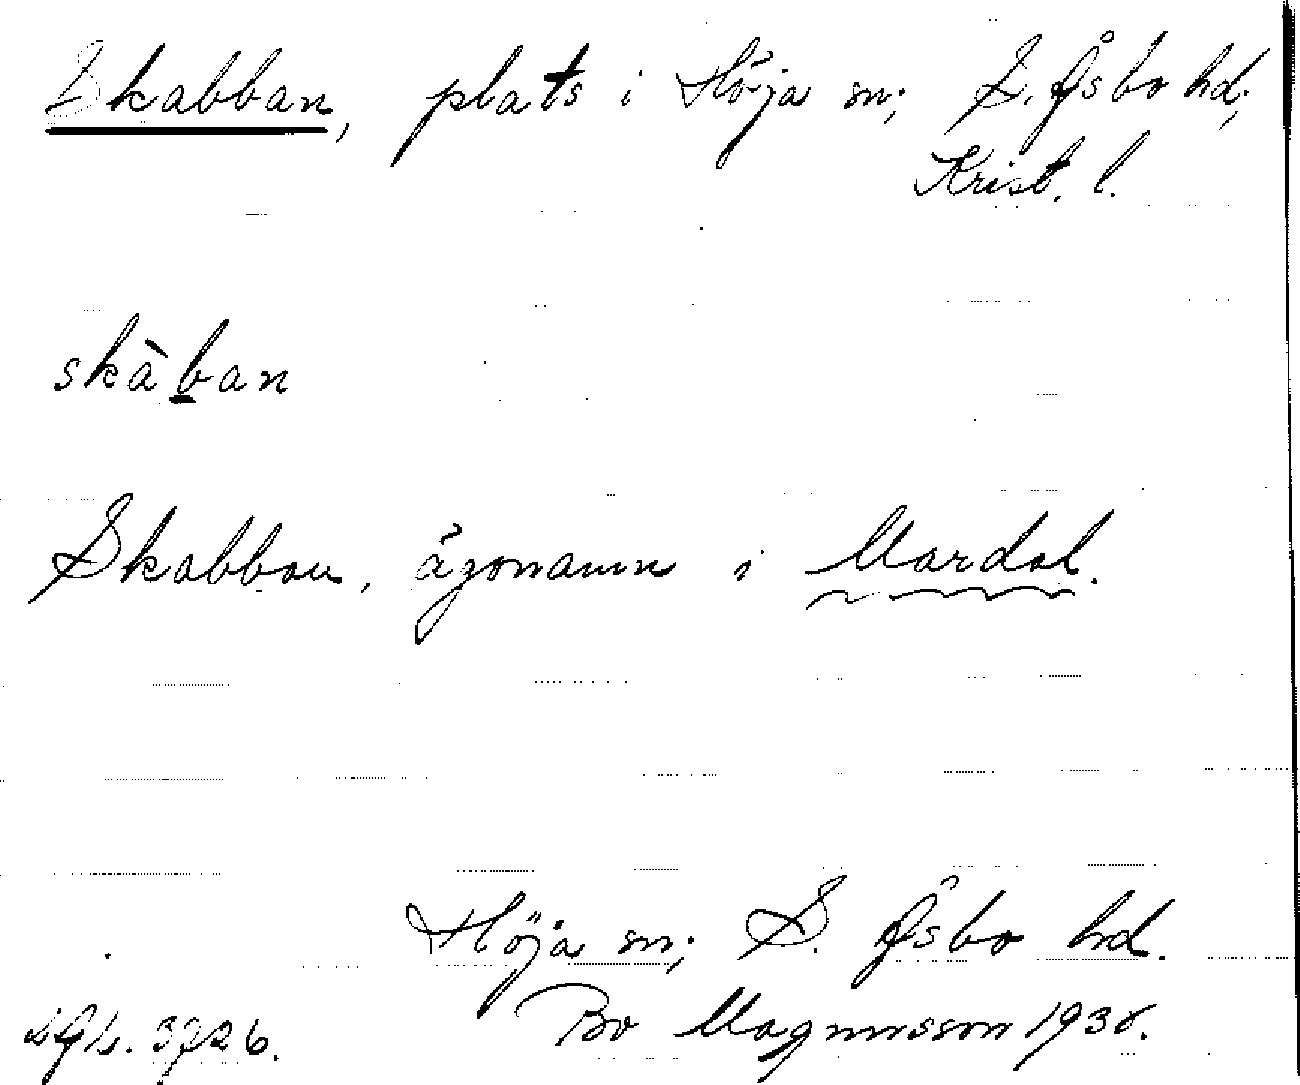 Skabban, plats i Höja sn; S. Åsbo hd;
Krist. l.
skàban
Skabban, ägonamn i Mardal.
Höja sn; S. Åsbo hd.
Bo Magnusson 1938.